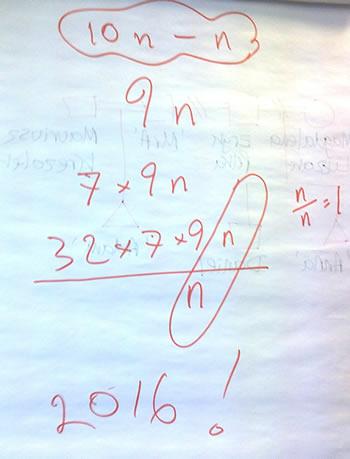 10n - n
9n
7 × 9n
32 × 7 × 9n
n
n/n = 1
2016!